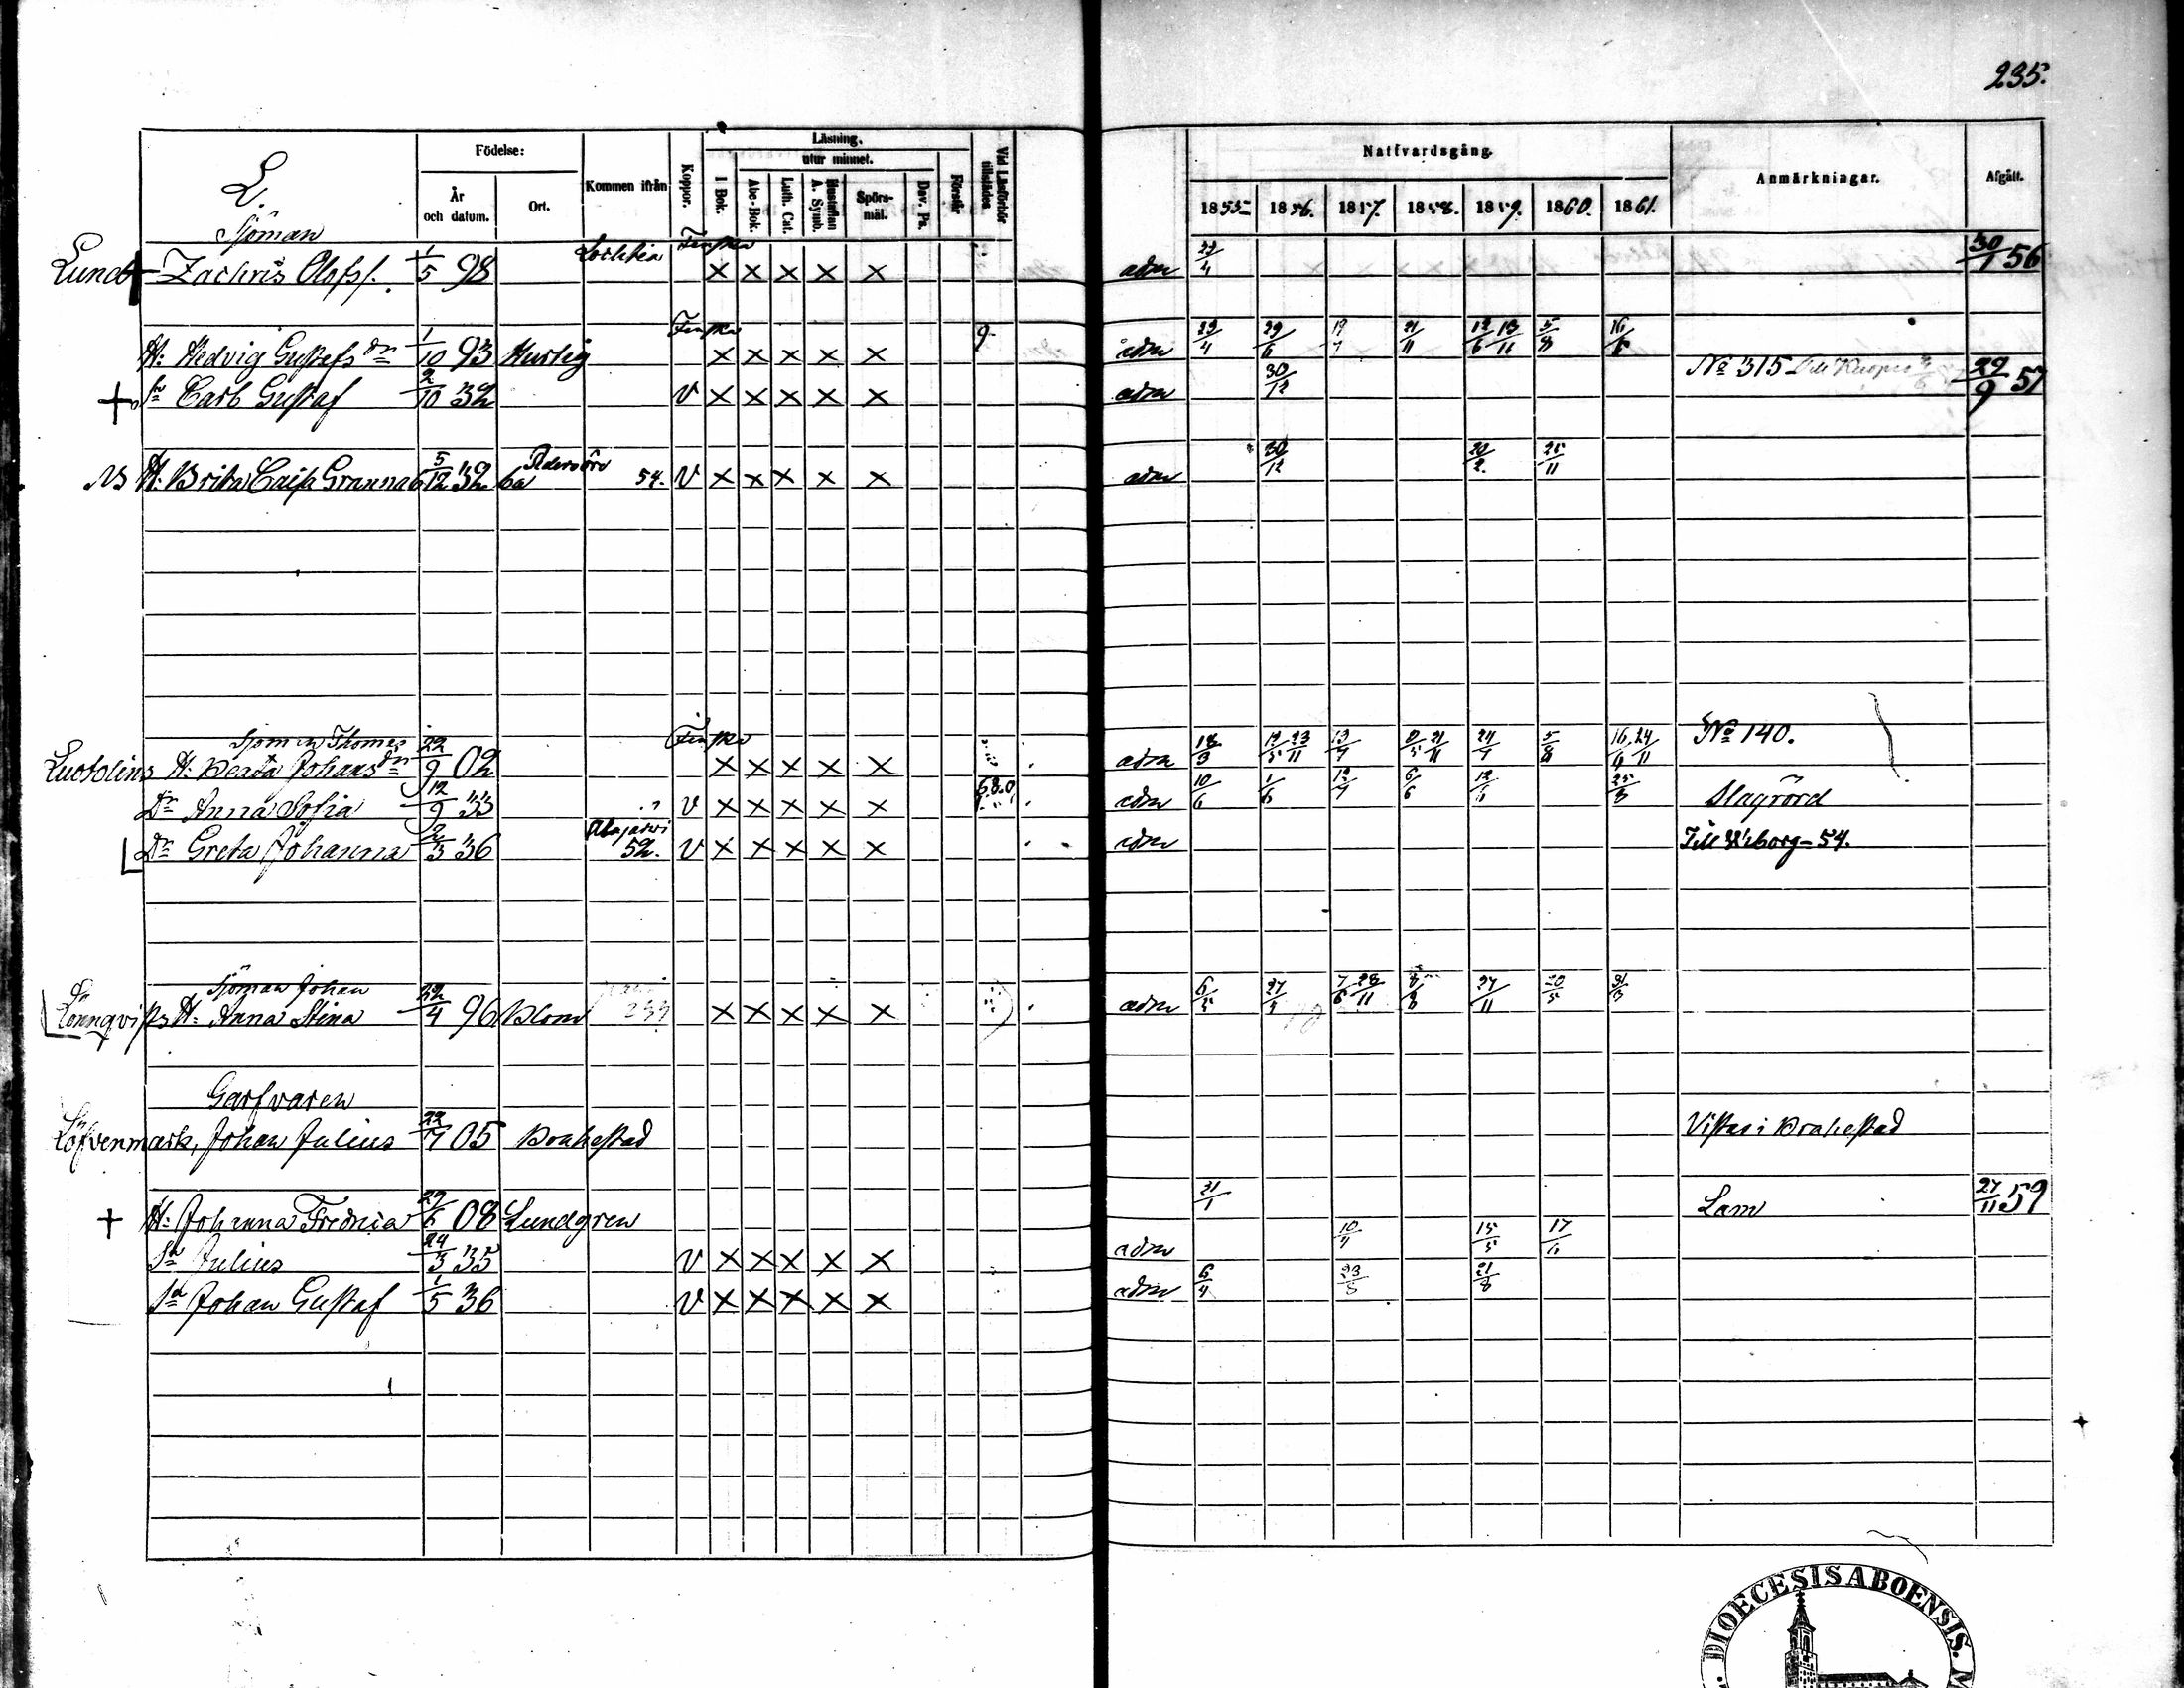 235.
L.
Födelse:
År och datum.
Ort.
Kommen ifrån
Koppor.
Läsning.
utur minnet.
I Bok.
Abc-Bok.
Luth. Cat.
Hustaflan A. Symb.
Spörs-mål.
Dav. Ps.
Förstår
Vid Läsförhör tillstädes
Nattvardsgång.
1855 1856. 1857. 1858. 1859. 1860. 1861.
Anmärkningar.
Afgått.
Sjöman
Lund + Zachris Olofss. 1/5 98 Lochtia Finska × × × × × adm 22/4 30/1 56
H: Hedvig Gustafs dr 1/10 93 Hurtig Finska × × × × × 9. adm 29/4 29/6 12/6 13/11 5/8 16/6
+ Sn Carl Gustaf 2/10 32 V × × × × × adm 30/12 No 315 29/9 57
NB H: Brita Caisa Granna 5/12 32 54. V × × × × × adm 30/12 20/2. 25/11
Sjöman Thomas
H: Beata Johans dr 22/9 02 Finska × × × × × adm 18/3 13/7 24/7 5/8 16/4 24/11 No 140.
Dr Anna Sofia 12/9 33 V × × × × × 6.8.0 adm 10/6 1/6 12/7 6/6 25/8 Slagrörd
Dr Greta Johanna 2/3 36 Alajärvi 52. V × × × × × adm Till Wiborg-54.
Sjöman Johan
Lönnqvists H: Anna Stina 22/4 96 Blom 233 × × × × × adm 7/6 28/11 27/11 20/5 31/3
Garfvaren
Löfvenmark, Johan Julius 22/7 05 Brahestad Vistas i Brahestad
+ H: Johanna Fredrica 29/6 08 Lundgren 21/1 Lam 27/11 59
Sn Julius 24/3 35 V × × × × × adm 10/7 15/5 17/6
Sn Johan Gustaf 1/5 36 V × × × × × adm 6/4 23/8 21/8
DIOECESIS ABOENSIS.